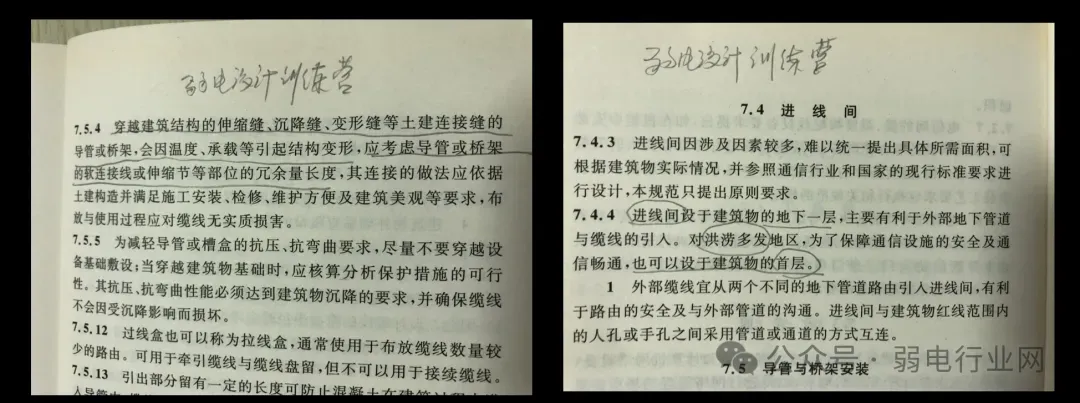 弱电设计训练营
7.5.4 穿越建筑结构的伸缩缝、沉降缝、变形缝等土建连接缝的
导管或桥架,会因温度、承载等引起结构变形,应考虑导管或桥架
的软连接线或伸缩节等部位的冗余量长度,其连接的做法应依据
土建构造并满足施工安装、检修、维护方便及建筑美观等要求,布
放与使用过程应对缆线无实质损害。
7.5.5 为减轻导管或槽盒的抗压、抗弯曲要求,尽量不要穿越设
备基础敷设;当穿越建筑物基础时,应核算分析保护措施的可行
性。其抗压、抗弯曲性能必须达到建筑物沉降的要求,并确保缆线
不会因受沉降影响而损坏。
7.5.12 过线盒也可以称为拉线盒,通常使用于布放缆线数量较
少的路由。可用于牵引缆线与缆线盘留,但不可以用于接续缆线。
7.5.13 引出部分留有一定的长度可防止混凝土在建筑过程中进
弱电设计训练营
7.4 进线间
7.4.3 进线间因涉及因素较多,难以统一提出具体所需面积,可
根据建筑物实际情况,并参照通信行业和国家的现行标准要求进
行设计,本规范只提出原则要求。
7.4.4 进线间设于建筑物的地下一层,主要有利于外部地下管道
与缆线的引入。对洪涝多发地区,为了保障通信设施的安全及通
信畅通,也可以设于建筑物的首层。
1 外部缆线宜从两个不同的地下管道路由引入进线间,有利
于路由的安全及与外部管道的沟通。进线间与建筑物红线范围内
的人孔或手孔之间采用管道或通道的方式互连。
7.5 导管与桥架安装
公众号·弱电行业网